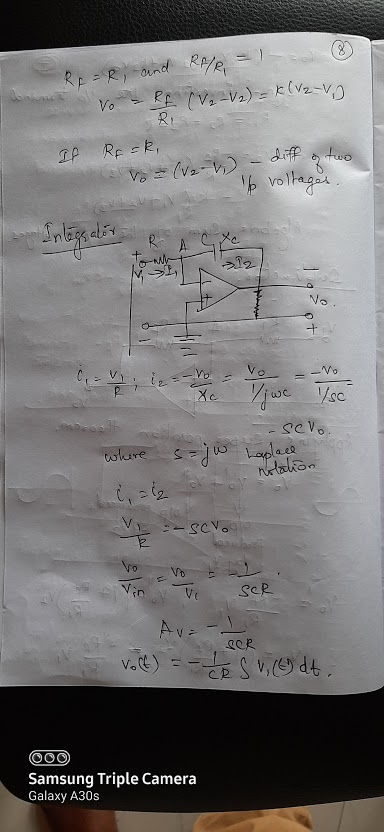 8
RF = R1 and RF/R1 = 1
Vo = RF/R1 (V2-V2) = K(V2-V1)
If RF = R1
Vo = (V2-V1) - diff of two
i/p voltages.
Integrator
R A C Xc
+ V1 → I1 → I2 -
- +
Vo
- +
i1 = V1/R ; i2 = -Vo/Xc = Vo/1/jwc = -Vo/1/sc
- SCVo.
where s = jw Laplace
notation
i1 = i2
V1/R = -SCVo
Vo/Vin = Vo/V1 = -1/SCR .
Av = -1/SCR
Vo(t) = -1/CR ∫ V1(t) dt.
Samsung Triple Camera
Galaxy A30s